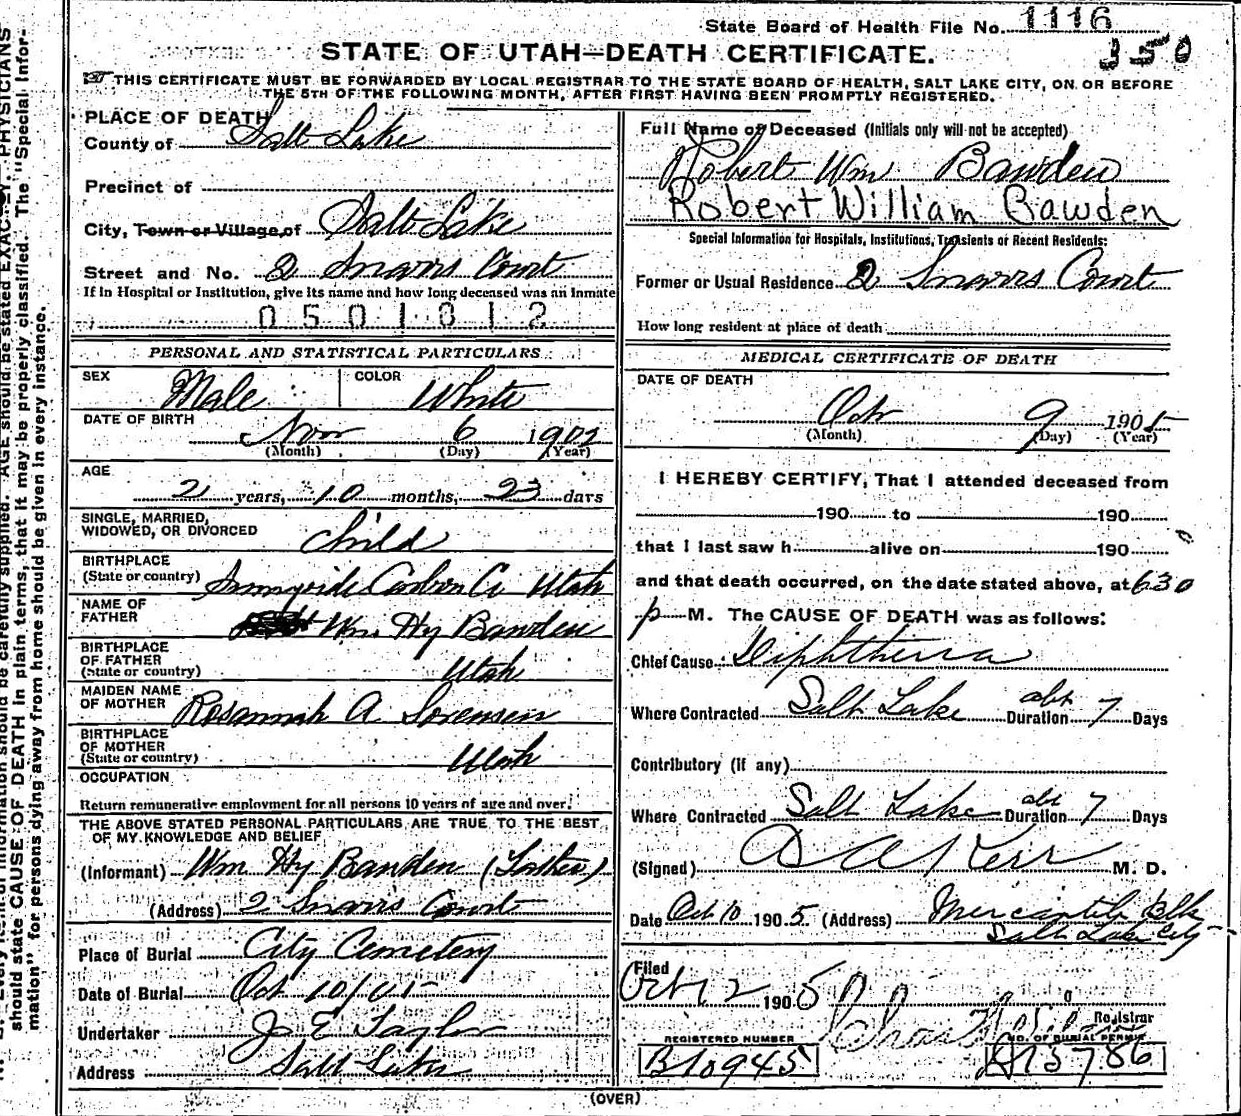 State Board of Health File No. 1116
350
STATE OF UTAH—DEATH CERTIFICATE.
THIS CERTIFICATE MUST BE FORWARDED BY LOCAL REGISTRAR TO THE STATE BOARD OF HEALTH, SALT LAKE CITY, ON OR BEFORE
THE 5TH OF THE FOLLOWING MONTH, AFTER FIRST HAVING BEEN PROMPTLY REGISTERED.
PLACE OF DEATH
County of Salt Lake
Precinct of
City, Town or Village, of Salt Lake
Street and No. 2 Court
If in Hospital or Institution, give its name and how long deceased was an inmate
0501812
PERSONAL AND STATISTICAL PARTICULARS
SEX Male COLOR White
DATE OF BIRTH
Nov 6 1902
(Month) (Day) (Year)
AGE
2 years, 10 months, 23 days
SINGLE, MARRIED,
WIDOWED, OR DIVORCED Child
BIRTHPLACE
(State or country) Sunnyside Carbon Co Utah
NAME OF
FATHER Wm. Hy Bawden
BIRTHPLACE
OF FATHER
(State or country) Utah
MAIDEN NAME
OF MOTHER Rosannah A Sorensen
BIRTHPLACE
OF MOTHER
(State or country) Utah
OCCUPATION
Return remunerative employment for all persons 10 years of age and over.
THE ABOVE STATED PERSONAL PARTICULARS ARE TRUE TO THE BEST
OF MY KNOWLEDGE AND BELIEF
(Informant) Wm Hy Bawden (Father)
(Address) 2 Court
Place of Burial City Cemetery
Date of Burial Oct 10/05
Undertaker J E Taylor
Address Salt Lake
Full Name of Deceased (Initials only will not be accepted)
Robert Wm Bawden
Robert William Bawden
Special Information for Hospitals, Institutions, Transients or Recent Residents:
Former or Usual Residence 2 Court
How long resident at place of death
MEDICAL CERTIFICATE OF DEATH
DATE OF DEATH
Oct 9 1905
(Month) (Day) (Year)
I HEREBY CERTIFY, That I attended deceased from
190 to 190
that I last saw h alive on 190
and that death occurred, on the date stated above, at 630
p M. The CAUSE OF DEATH was as follows:
Chief Cause Diphtheria
Where Contracted Salt Lake Duration abt 7 Days
Contributory (if any)
Where Contracted Salt Lake Duration abt 7 Days
(Signed) D A Kerr M. D.
Date Oct 10 1905 (Address) Mercantile Blk
Salt Lake City
Filed
Oct 12 1905
Registrar
REGISTERED NUMBER NO. OF BURIAL PERMIT
B10945 A13786
(OVER)
should state CAUSE OF DEATH in plain terms, that it may be properly classified. The "Special Infor-
mation" for persons dying away from home should be given in every instance.